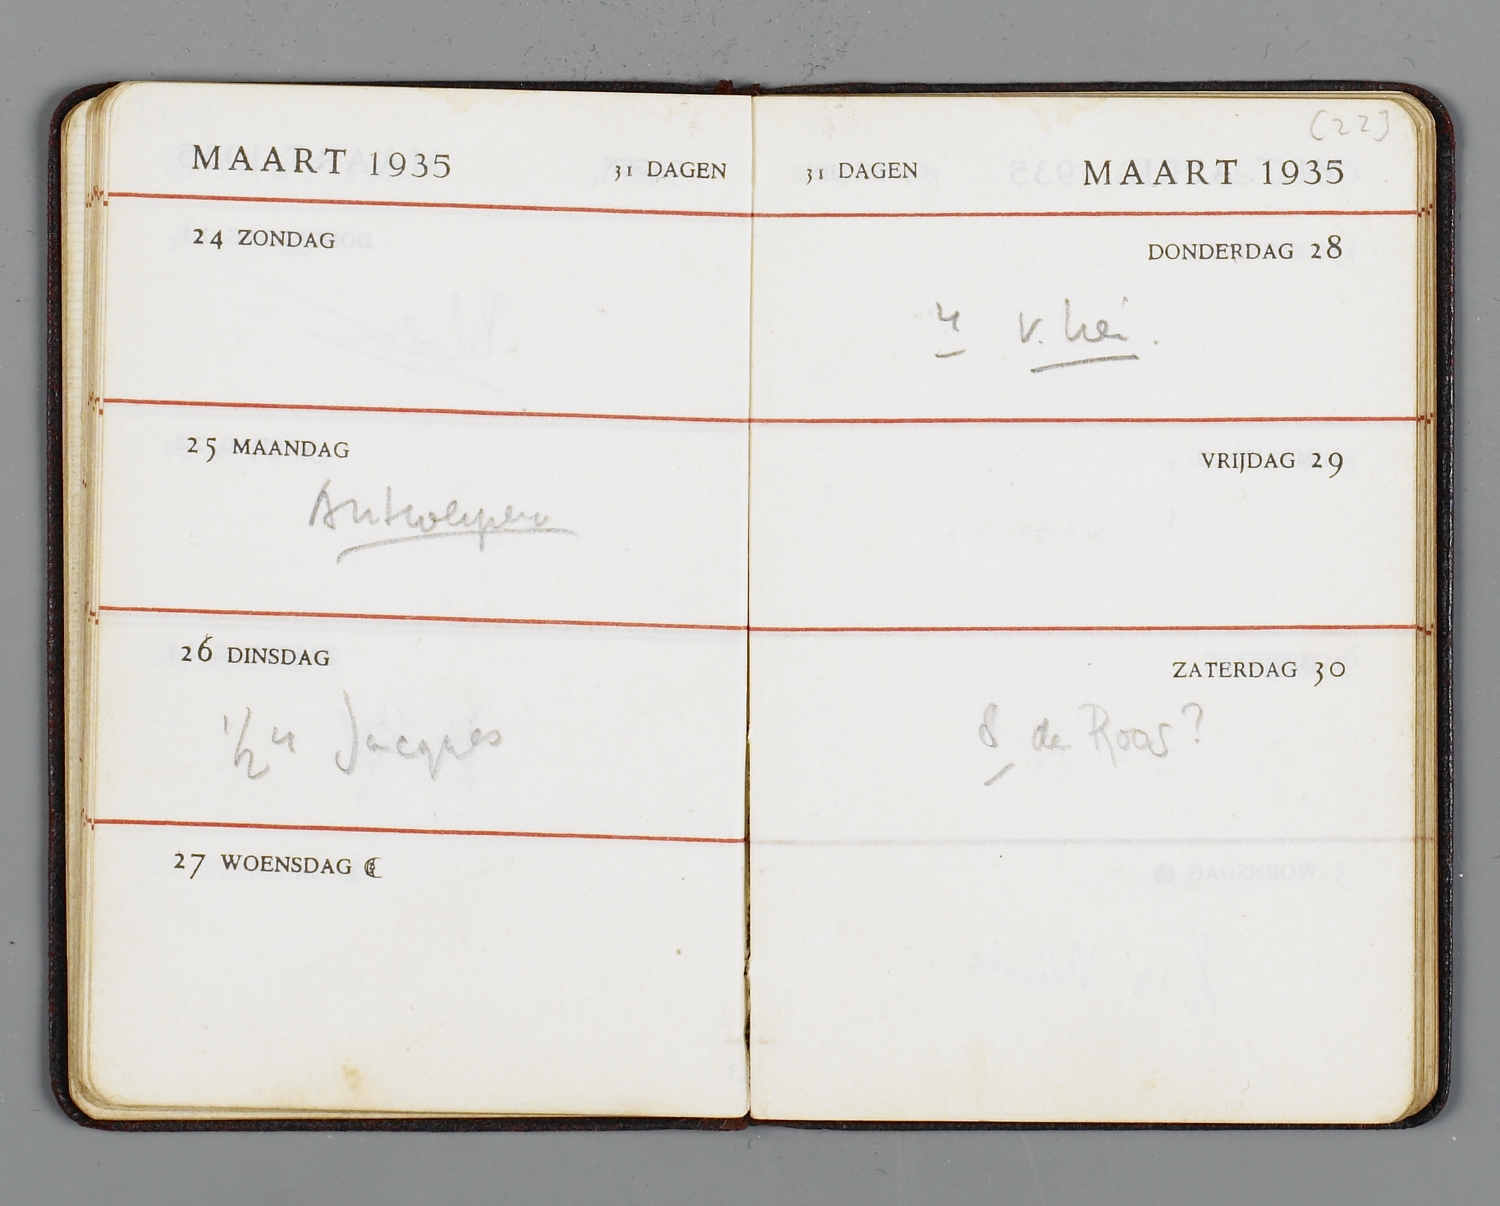 MAART 1935 31 DAGEN
24 ZONDAG
25 MAANDAG
Antwerpen
26 DINSDAG
1/2 4 Jacques
27 WOENSDAG
(22)
31 DAGEN MAART 1935
DONDERDAG 28
4 v.
VRIJDAG 29
ZATERDAG 30
8 de Roos?